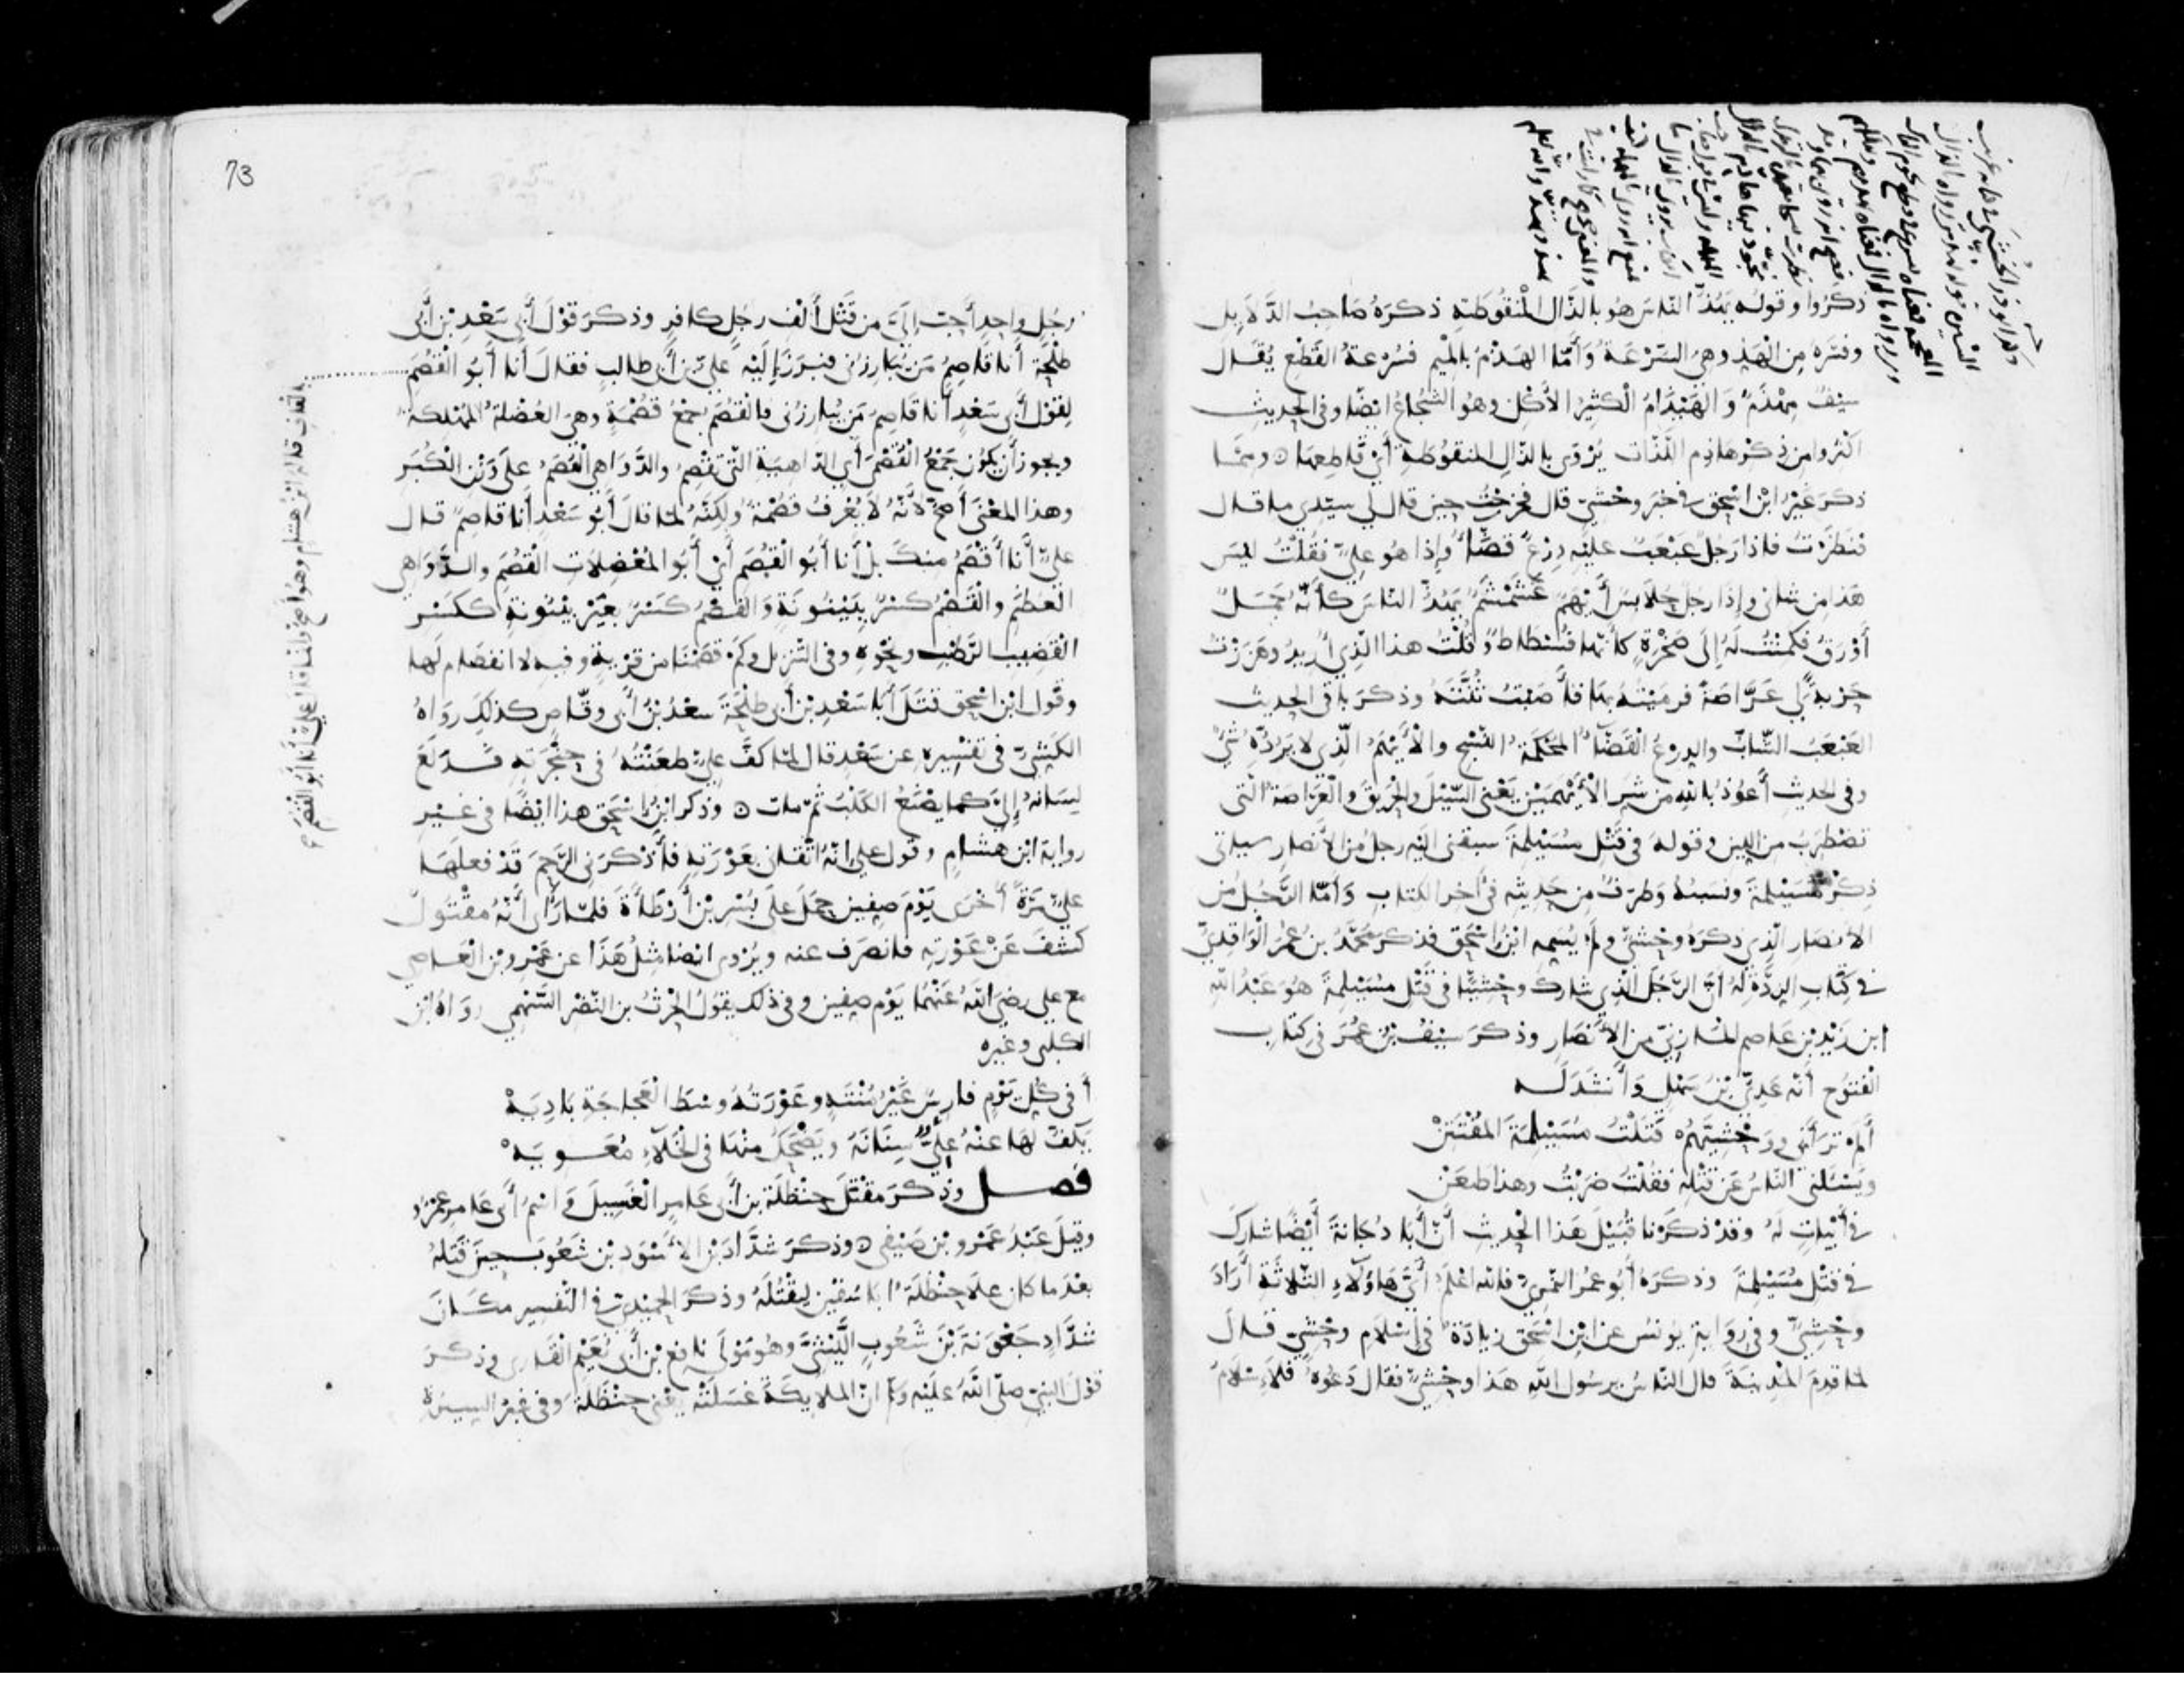 ذكروا وقوله يهذ الناس هو بالذال المنقوطة ذكره صاحب الدلايل
وفسره من الهذ وهي السرعة وأما الهذم بالميم فسرعة القطع يقال
سيف مهذم والهيذام الكثير الأكل وهو الشجاع ايضا وفي الحديث
اكثروا من ذكر هاذم اللذات يروى بالذال المنقوطة أي قاطعها ٥ ومما
ذكر غير ابن اسحق في خبر وحشي قال فخرجت حين قال لي سيدي ما قال
فنظرت فاذا رجل عبعب عليه درع قضاء وإذا هو علي فقلت ليس
هذا من شاني وإذا رجل حلابس أيهم غشمشم يهذ الناس كأنه جمل
أورق فكمنت له إلى صخرة كأنها فسطاط وقلت هذا الذي أريد وهززت
حربة لي عراصة فرميته بها فأصبت ثنته وذكر باقي الحديث
العبعب الشاب والدرع القضاء المحكمة النسج والأيهم الذي لا يرده شي
وفي الحديث أعوذ بالله من شر الأيهمين يعني السيل والحريق والعراصة التي
تضطرب من اللين وقوله في قتل مسيلمة سبقني اليه رجل من الأنصار سياتي
ذكر مسيلمة ونسبه وطرف من حديثه في آخر الكتاب وأما الرجل من
الأنصار الذي ذكره وحشي ولم يسمه ابن اسحق فذكر محمد بن عمر الواقدي
في كتاب الردة له ان الرجل الذي شارك وحشيا في قتل مسيلمة هو عبد الله
ابن زيد بن عاصم المازني من الأنصار وذكر سيف بن عمر في كتاب
الفتوح أنه عدي بن سهل وأنشد له
ألم تر أني ووحشيهم قتلت مسيلمة المفتتن
ويسئلني الناس عن قتله فقلت ضربت وهذا طعن
في أبيات له وقد ذكرنا قبيل هذا الحديث أن أبا دجانة أيضا شارك
في قتل مسيلمة وذكره أبو عمر النمري فالله اعلم أي هاؤلاء الثلاثة أراد
وحشي وفي رواية يونس عن ابن اسحق زيادة في إسلام وحشي قال
لما قدم المدينة قال الناس يرسول الله هذا وحشي فقال دعوه فلإسلام
73
رجل واحد أحب إلي من قتل ألف رجل كافر وذكر قول أبي سعد بن أبي
طلحة أنا قاصم من يبارزني فبرز إليه علي بن أبي طالب فقال أنا أبو القصم
لقول أبي سعد أنا قاصم من يبارزني فالقصم جمع قصمة وهي العضلة المهلكة
ويجوز أن يكون جمع القصمى أي الداهية التي تقصم والدواهي القصم على وزن الكبر
وهذا المعنى أصح لأنه لا يعرف قصمة ولكنه لما قال أبو سعد أنا قاصم قال
علي أنا أقصم منك بل أنا أبو القصم أي أبو المعضلات القصم والدواهي
العظم والقصم كسر ببينونة والفصم كسر بغير بينونة ككسر
القضيب الرطب ونحوه وفي التنزيل وكم قصمنا من قرية وفيه لا انفصام لها
وقول ابن اسحق قتل أبا سعد بن أبي طلحة سعد بن أبي وقاص كذلك رواه
الكشي في تفسيره عن سعد قال لما كف علي طعنته في حنجرته فدلع
لسانه إلي كما يصنع الكلب ثم مات ٥ وذكر ابن اسحق هذا ايضا في غير
رواية ابن هشام وقول علي انه اتقاني بعورته فأذكرني الرحم قد فعلها
علي مرة أخرى يوم صفين حمل على بسر بن أرطأة فلما رأى أنه مقتول
كشف عن عورته فانصرف عنه ويروى ايضا مثل هذا عن عمرو بن العاصي
مع علي رضي الله عنهما يوم صفين وفي ذلك يقول الحرث بن النضر السهمي رواه ابن
الكلبي وغيره
أفي كل يوم فارس غير منته وعورته وسط العجاجة باديه
يكف لها عنه علي سنانه ويضحك منها في الخلاء معويه
فصل وذكر مقتل حنظلة بن أبي عامر الغسيل واسم أبي عامر عمرو
وقيل عبد عمرو بن صيفي ٥ وذكر شداد بن الأسود بن شعوب حين قتله
بعد ما كان علا حنظلة أبا سفين ليقتله وذكر الحميدي في التفسير مكان
شداد جعونة بن شعوب الليثي وهو مولى نافع بن أبي نعيم القاري وذكر
قول النبي صلى الله عليه وسلم ان الملايكة غسلته يعني حنظلة وفي غير السيرة
بالقاف قاله ابن هشام وهو أصح وانما قال علي أنا أبو القصم